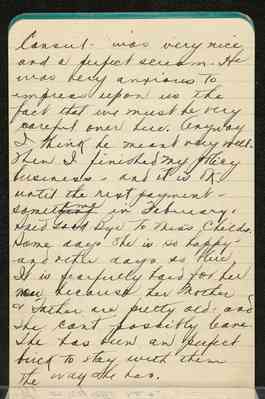 Consul - was very nice
and a perfect scream. He
was very anxious to
impress upon us the
fact that we must be very
careful over here. Anyway
I think he meant very well.
Then I finished my
business - and it is OK
until the next payment -
sometime in February.
Said Good Bye to Miss Childs.
Some days she is so happy -
and other days so blue,
It is fearfully hard for her
because her Mother
& Father are pretty old - and
she can't possibly leave
She has been an perfect
brick to stay with them
the way she has.